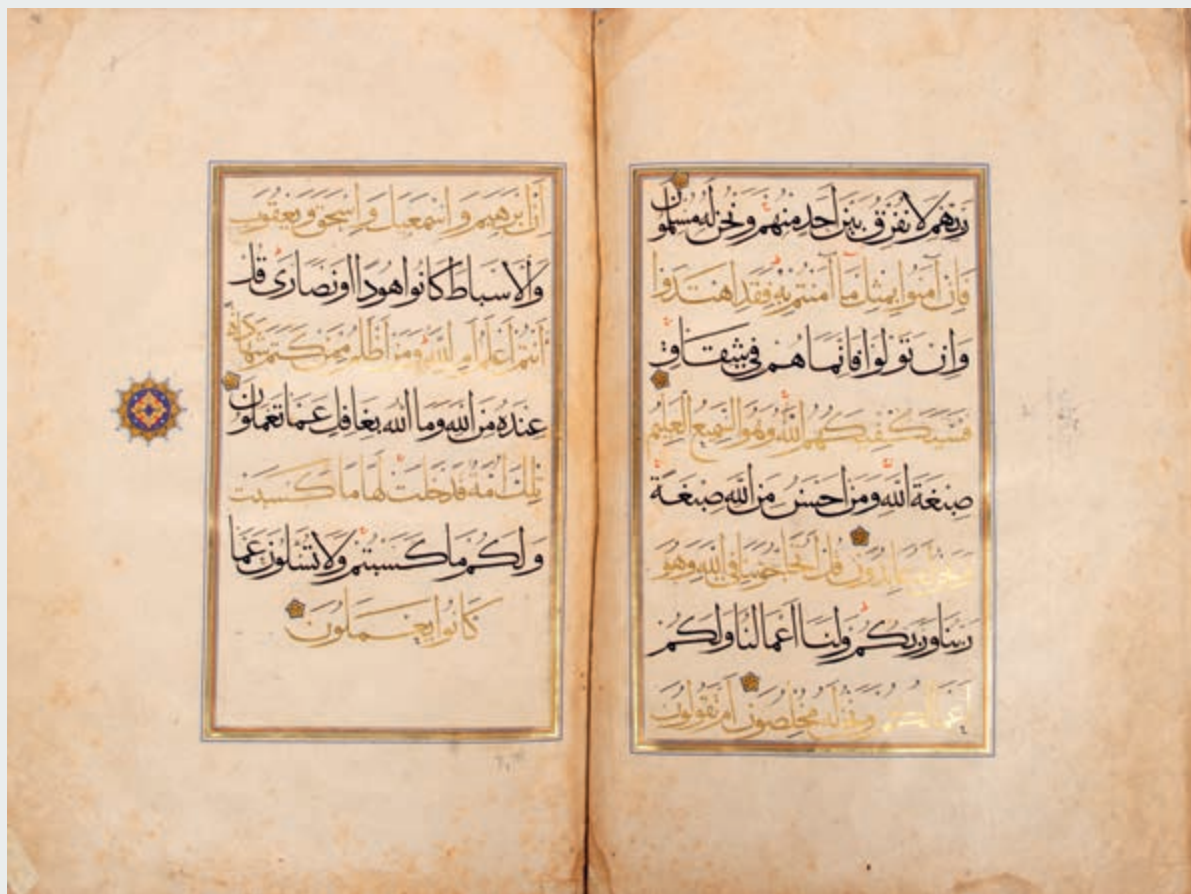 رَبِّهِمْ لَا نُفَرِّقُ بَيْنَ اَحَدٍ مِنْهُمْ وَنَحْنُ لَهُ مُسْلِمُونَ
فَاِنْ آمَنُوا بِمِثْلِ مَا آمَنْتُمْ بِهِ فَقَدِ اهْتَدَوْا
وَاِنْ تَوَلَّوْا فَاِنَّمَا هُمْ فِي شِقَاقٍ
فَسَيَكْفِيكَهُمُ اللَّهُ وَهُوَ السَّمِيعُ الْعَلِيمُ
صِبْغَةَ اللَّهِ وَمَنْ اَحْسَنُ مِنَ اللَّهِ صِبْغَةً
وَنَحْنُ لَهُ عَابِدُونَ قُلْ اَتُحَاجُّونَنَا فِي اللَّهِ وَهُوَ
رَبُّنَا وَرَبُّكُمْ وَلَنَا اَعْمَالُنَا وَلَكُمْ
اَعْمَالُكُمْ وَنَحْنُ لَهُ مُخْلِصُونَ اَمْ تَقُولُونَ
اِنَّ اِبْرَهِيمَ وَاِسْمَعِيلَ وَاِسْحَقَ وَيَعْقُوبَ
وَالْاَسْبَاطَ كَانُوا هُودًا اَوْ نَصَارَى قُلْ
ءَاَنْتُمْ اَعْلَمُ اَمِ اللَّهُ وَمَنْ اَظْلَمُ مِمَّنْ كَتَمَ شَهَادَةً
عِنْدَهُ مِنَ اللَّهِ وَمَا اللَّهُ بِغَافِلٍ عَمَّا تَعْمَلُونَ
تِلْكَ اُمَّةٌ قَدْ خَلَتْ لَهَا مَا كَسَبَتْ
وَلَكُمْ مَا كَسَبْتُمْ وَلَا تُسْئَلُونَ عَمَّا
كَانُوا يَعْمَلُونَ